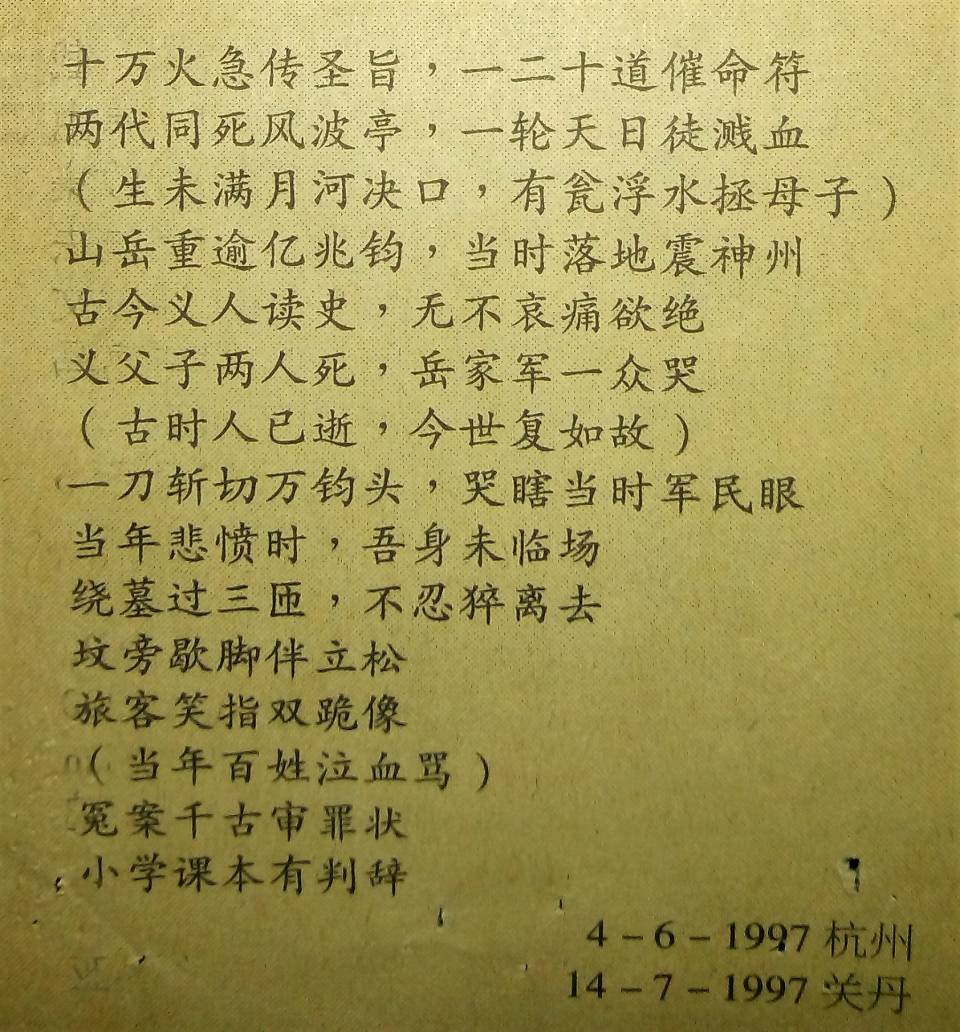 十万火急传圣旨，一二十道催命符
两代同死风波亭，一轮天日徒溅血
（生未满月河决口，有瓮浮水拯母子）
山岳重逾亿兆钧，当时落地震神州
古今义人读史，无不哀痛欲绝
义父子两人死，岳家军一众哭
（古时人已逝，今世复如故）
一刀斩切万钧头，哭瞎当时军民眼
当年悲愤时，吾身未临场
绕墓过三匝，不忍猝离去
坟旁歇脚伴立松
旅客笑指双跪像
（当年百姓泣血骂）
冤案千古审罪状
小学课本有判辞
4-6-1997 杭州
14-7-1997 关丹